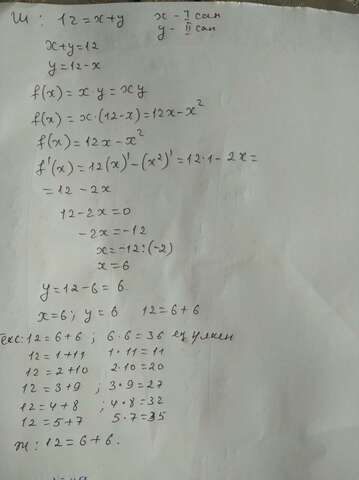 Ш: 12=x+y x - I сан
y - II сан
x+y=12
y=12-x
f(x)=x·y=xy
f(x)=x·(12-x)=12x-x²
f(x)=12x-x²
f'(x)=12(x)'-(x²)'=12·1-2x=
=12-2x
12-2x=0
-2x=-12
x=-12:(-2)
x=6
y=12-6=6.
x=6; y=6 12=6+6
Текс: 12=6+6; 6·6=36 ең үлкен
12=1+11 1·11=11
12=2+10 2·10=20
12=3+9; 3·9=27
12=4+8; 4·8=32
12=5+7 5·7=35
Ж: 12=6+6.